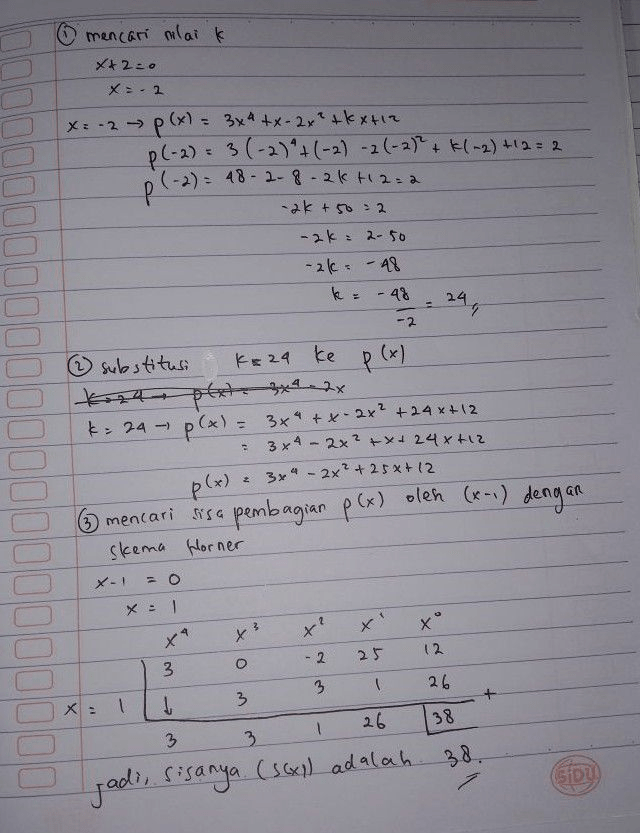 ① mencari nilai k
x+2=0
x = -2
x = -2 → p(x) = 3x⁴ + x - 2x² + kx + 12
p(-2) = 3(-2)⁴ + (-2) - 2(-2)² + k(-2) + 12 = 2
p(-2) = 48 - 2 - 8 - 2k + 12 = 2
-2k + 50 = 2
-2k = 2 - 50
-2k = -48
k = -48/-2 = 24
② substitusi k = 24 ke p(x)
k = 24 → p(x) = 3x⁴ - 2x
k = 24 → p(x) = 3x⁴ + x - 2x² + 24x + 12
= 3x⁴ - 2x² + x + 24x + 12
p(x) = 3x⁴ - 2x² + 25x + 12
③ mencari sisa pembagian p(x) oleh (x-1) dengan
skema Horner
x - 1 = 0
x = 1
x⁴ x³ x² x¹ x⁰
3 0 -2 25 12
x = 1 ↓ 3 3 1 26 +
3 3 1 26 38
Jadi, sisanya (s(x)) adalah 38.
SIDU